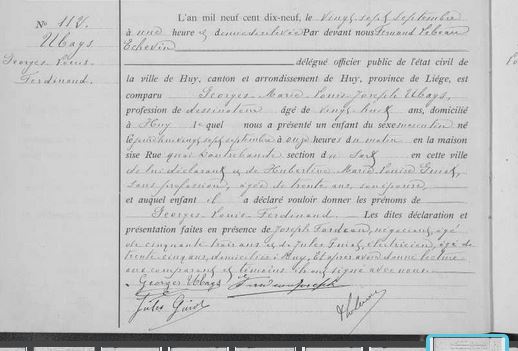 N° 112.
Ubags
Georges Louis
Ferdinand.
L'an mil neuf cent dix-neuf, le vingt sept septembre
à une heure et demie de relevée Par devant nous Fernand
Echevin
délégué officier public de l'état civil de
la ville de Huy, canton et arrondissement de Huy, province de Liége, est
comparu Georges Marie Louis Joseph Ubags,
profession de dessinateur âgé de vingt huit ans, domicilié
à Huy lequel nous a présenté un enfant du sexe masculin né
le vingt sept septembre à onze heures du matin en la maison
sise Rue quai section du en cette ville
de lui déclarant et de Hubertine Marie Louise
sans profession, âgée de trente ans, son épouse,
et auquel enfant il a déclaré vouloir donner les prénoms de
Georges Louis Ferdinand. Les dites déclaration et
présentation faites en présence de Joseph négociant, âgé
de cinquante trois ans et de Jules électricien, âgé de
trente cinq ans, domiciliés à Huy, Et après avoir donné lecture
aux comparant et témoins ils ont signé avec nous.
Georges Ubags
Jules